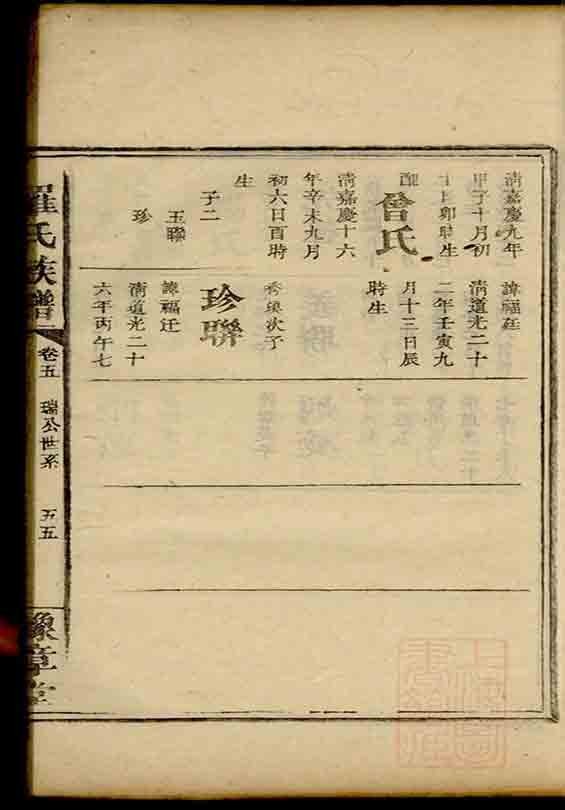 清嘉慶九年
甲子十月初
十日卯時生
配
曾氏
清嘉慶十六
年辛未九月
初六日酉時
生
子二
玉聯
珍
諱福廷
清道光二十
二年壬寅九
月十三日辰
時生
秀煥次子
珍聯
諱福迁
清道光二十
六年丙午七
羅氏族譜
卷五
瑞公世系
五五
豫章堂
上海圖
書館藏